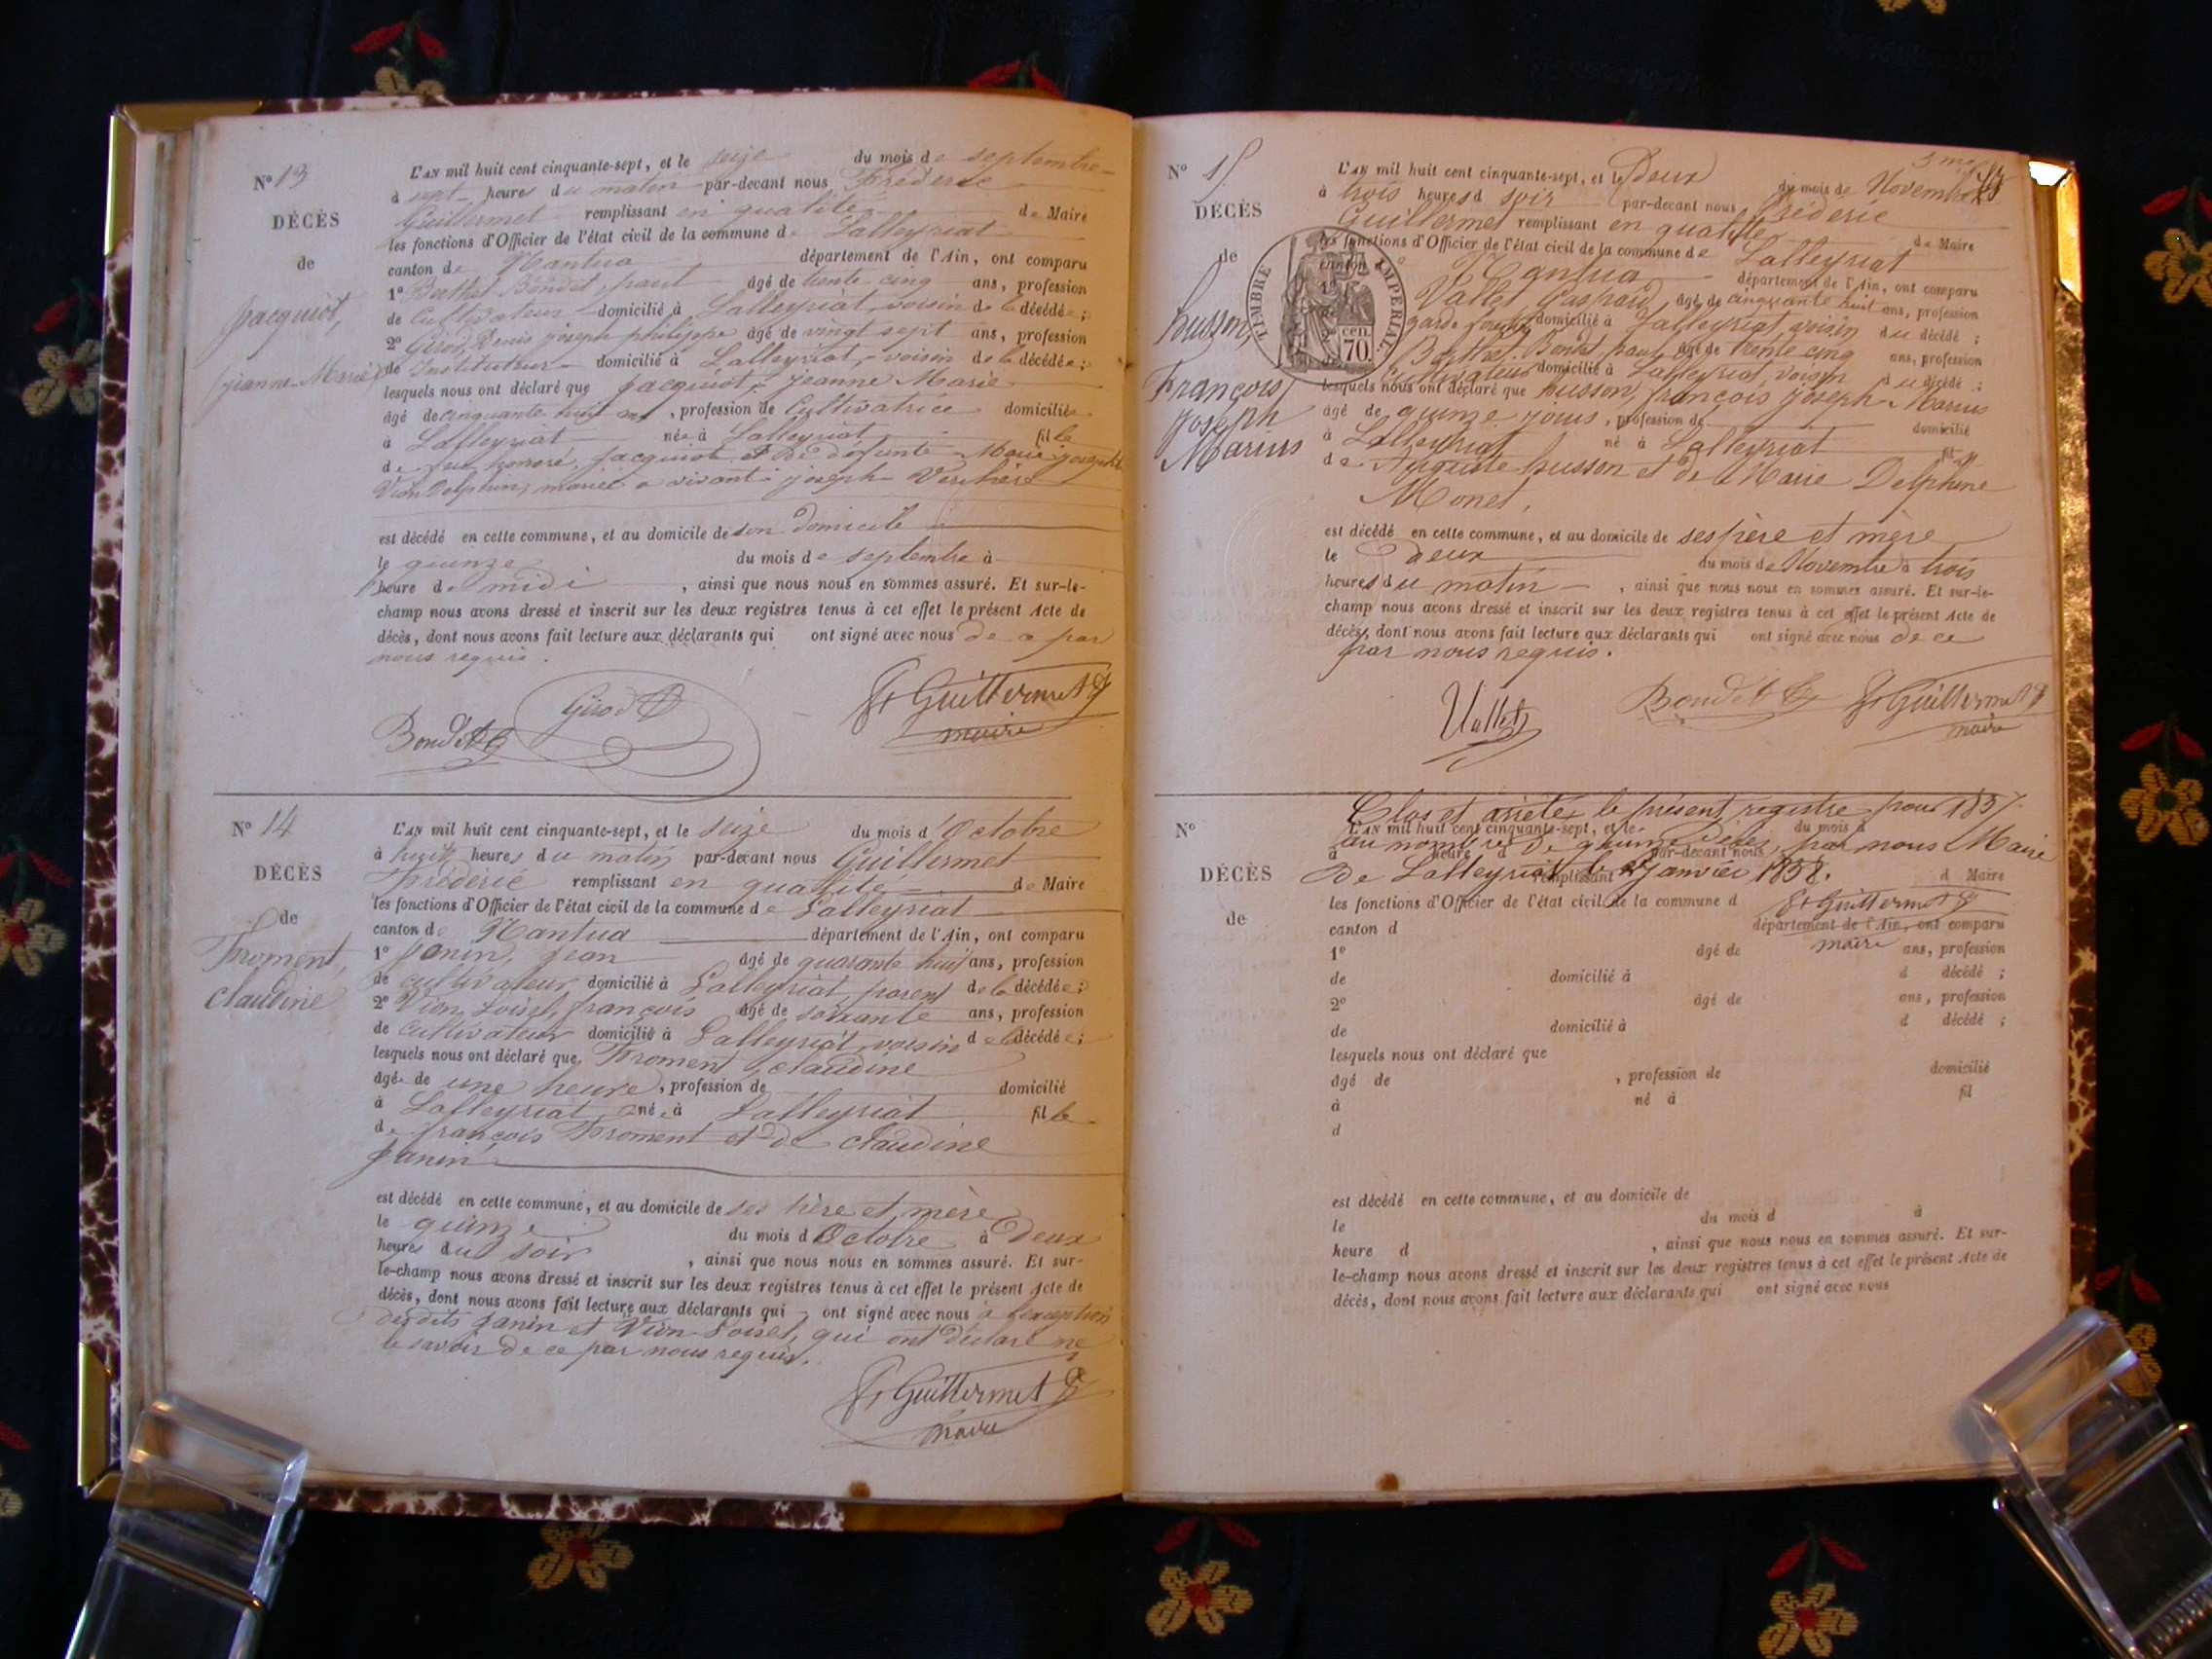 N° 13
DÉCÈS
de
Jacquiot,
Jeanne-Marie
L'AN mil huit cent cinquante-sept, et le seize du mois de septembre
à sept heures du matin par-devant nous Fréderic
Guillermet remplissant en qualité de Maire
les fonctions d'Officier de l'état civil de la commune de Lalleyriat
canton de Nantua département de l'Ain, ont comparu
1° Berthet Bondet, paul âgé de trente-cinq ans, profession
de Cultivateur domicilié à Lalleyriat, voisin de la décédée ;
2° Girod, Denis joseph philippe âgé de vingt sept ans, profession
de Instituteur domicilié à Lalleyriat, voisin de la décédée ;
lesquels nous ont déclaré que Jacquiot, jeanne Marie
âgé de cinquante huit ans, profession de Cultivatrice domiciliée
à Lalleyriat née à Lalleyriat fille
de feu honoré Jacquiot et de défunte Marie josephte
Vion Delphin, mariée a vivant joseph
est décédé en cette commune, et au domicile de son domicile
le quinze du mois de septembre à
heure de midi, ainsi que nous nous en sommes assuré. Et sur-le-
champ nous avons dressé et inscrit sur les deux registres tenus à cet effet le présent Acte de
décès, dont nous avons fait lecture aux déclarants qui ont signé avec nous de ce par
nous requis.
Bondet Girod fc Guillermet
maire
N° 14
DÉCÈS
de
Froment,
claudine
L'AN mil huit cent cinquante-sept, et le seize du mois d'Octobre
à huit heures du matin par-devant nous Guillermet
Frédéric remplissant en qualité de Maire
les fonctions d'Officier de l'état civil de la commune de Lalleyriat
canton de Nantua département de l'Ain, ont comparu
1° Janin, Jean âgé de quarante huit ans, profession
de cultivateur domicilié à Lalleyriat, parent de la décédée ;
2° Vion Loisel, françois âgé de soixante ans, profession
de Cultivateur domicilié à Lalleyriat, voisin de la décédée ;
lesquels nous ont déclaré que Froment, claudine
âgé de une heure, profession de domicilié
à Lalleyriat, née à Lalleyriat fille
de françois Froment et de claudine
Janin
est décédé en cette commune, et au domicile de ses père et mère
le quinze du mois d'Octobre à Deux
heures du soir, ainsi que nous nous en sommes assuré. Et sur-
le-champ nous avons dressé et inscrit sur les deux registres tenus à cet effet le présent Acte de
décès, dont nous avons fait lecture aux déclarants qui ont signé avec nous à l'exception
desdits Janin et Vion-Loisel, qui ont déclaré ne
le savoir de ce par nous requis.
Guillermet
maire
N° 15
DÉCÈS
de
husson,
François
Joseph
Marius
TIMBRE IMPERIAL
70 cen.
L'AN mil huit cent cinquante-sept, et le Deux du mois de Novembre
à trois heures d soir par-devant nous fréderic
Guillermet remplissant en qualité de Maire
les fonctions d'Officier de l'état civil de la commune de Lalleyriat
canton d Nantua département de l'Ain, ont comparu
Vallet, Gaspard, âgé de cinquante huit ans, profession
garde forest domicilié à Lalleyriat, voisin du décédé ;
Berthet Bondet Paul, âgé de trente cinq ans, profession
Cultivateur domicilié à Lalleyriat, voisin du décédé ;
lesquels nous ont déclaré que husson, françois joseph Marius
âgé de quinze jours, profession de domicilié
à Lalleyriat né à Lalleyriat fils
de Auguste husson et de Marie Delphine
Monet,
est décédé en cette commune, et au domicile de ses père et mère
le deux du mois de Novembre à trois
heures du matin, ainsi que nous nous en sommes assuré. Et sur-le-
champ nous avons dressé et inscrit sur les deux registres tenus à cet effet le présent Acte de
décès, dont nous avons fait lecture aux déclarants qui ont signé avec nous de ce
par nous requis.
Vallet Bondet Guillermet
maire
Clos et arrêté le présent registre pour 1857
au nombre de quinze Décès, par nous Maire
De Lalleyriat le janvier 1858.
Guillermet
maire
N°
DÉCÈS
de
L'AN mil huit cent cinquante-sept, et le du mois d
à heure d par-devant nous
remplissant d Maire
les fonctions d'Officier de l'état civil de la commune d
canton d département de l'Ain, ont comparu
1° âgé de ans, profession
de domicilié à d décédé ;
2° âgé de ans, profession
de domicilié à d décédé ;
lesquels nous ont déclaré que
âgé de , profession de domicilié
à né à fil
d
est décédé en cette commune, et au domicile de
le du mois d à
heure d , ainsi que nous nous en sommes assuré. Et sur-
le-champ nous avons dressé et inscrit sur les deux registres tenus à cet effet le présent Acte de
décès, dont nous avons fait lecture aux déclarants qui ont signé avec nous